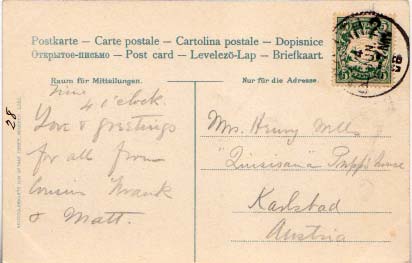 Postkarte – Carte postale – Cartolina postale – Dopisnice
Открытое-письмо – Post card – Levelező-Lap – Briefkaart.
Raum für Mitteilungen.
Nur für die Adresse.
time
4 o'clock.
Love & greetings
for all from
cousins Frank
& Matt.
28
Mrs. Henry Wells
"Quisisana"
Karlsbad
Austria
5
5